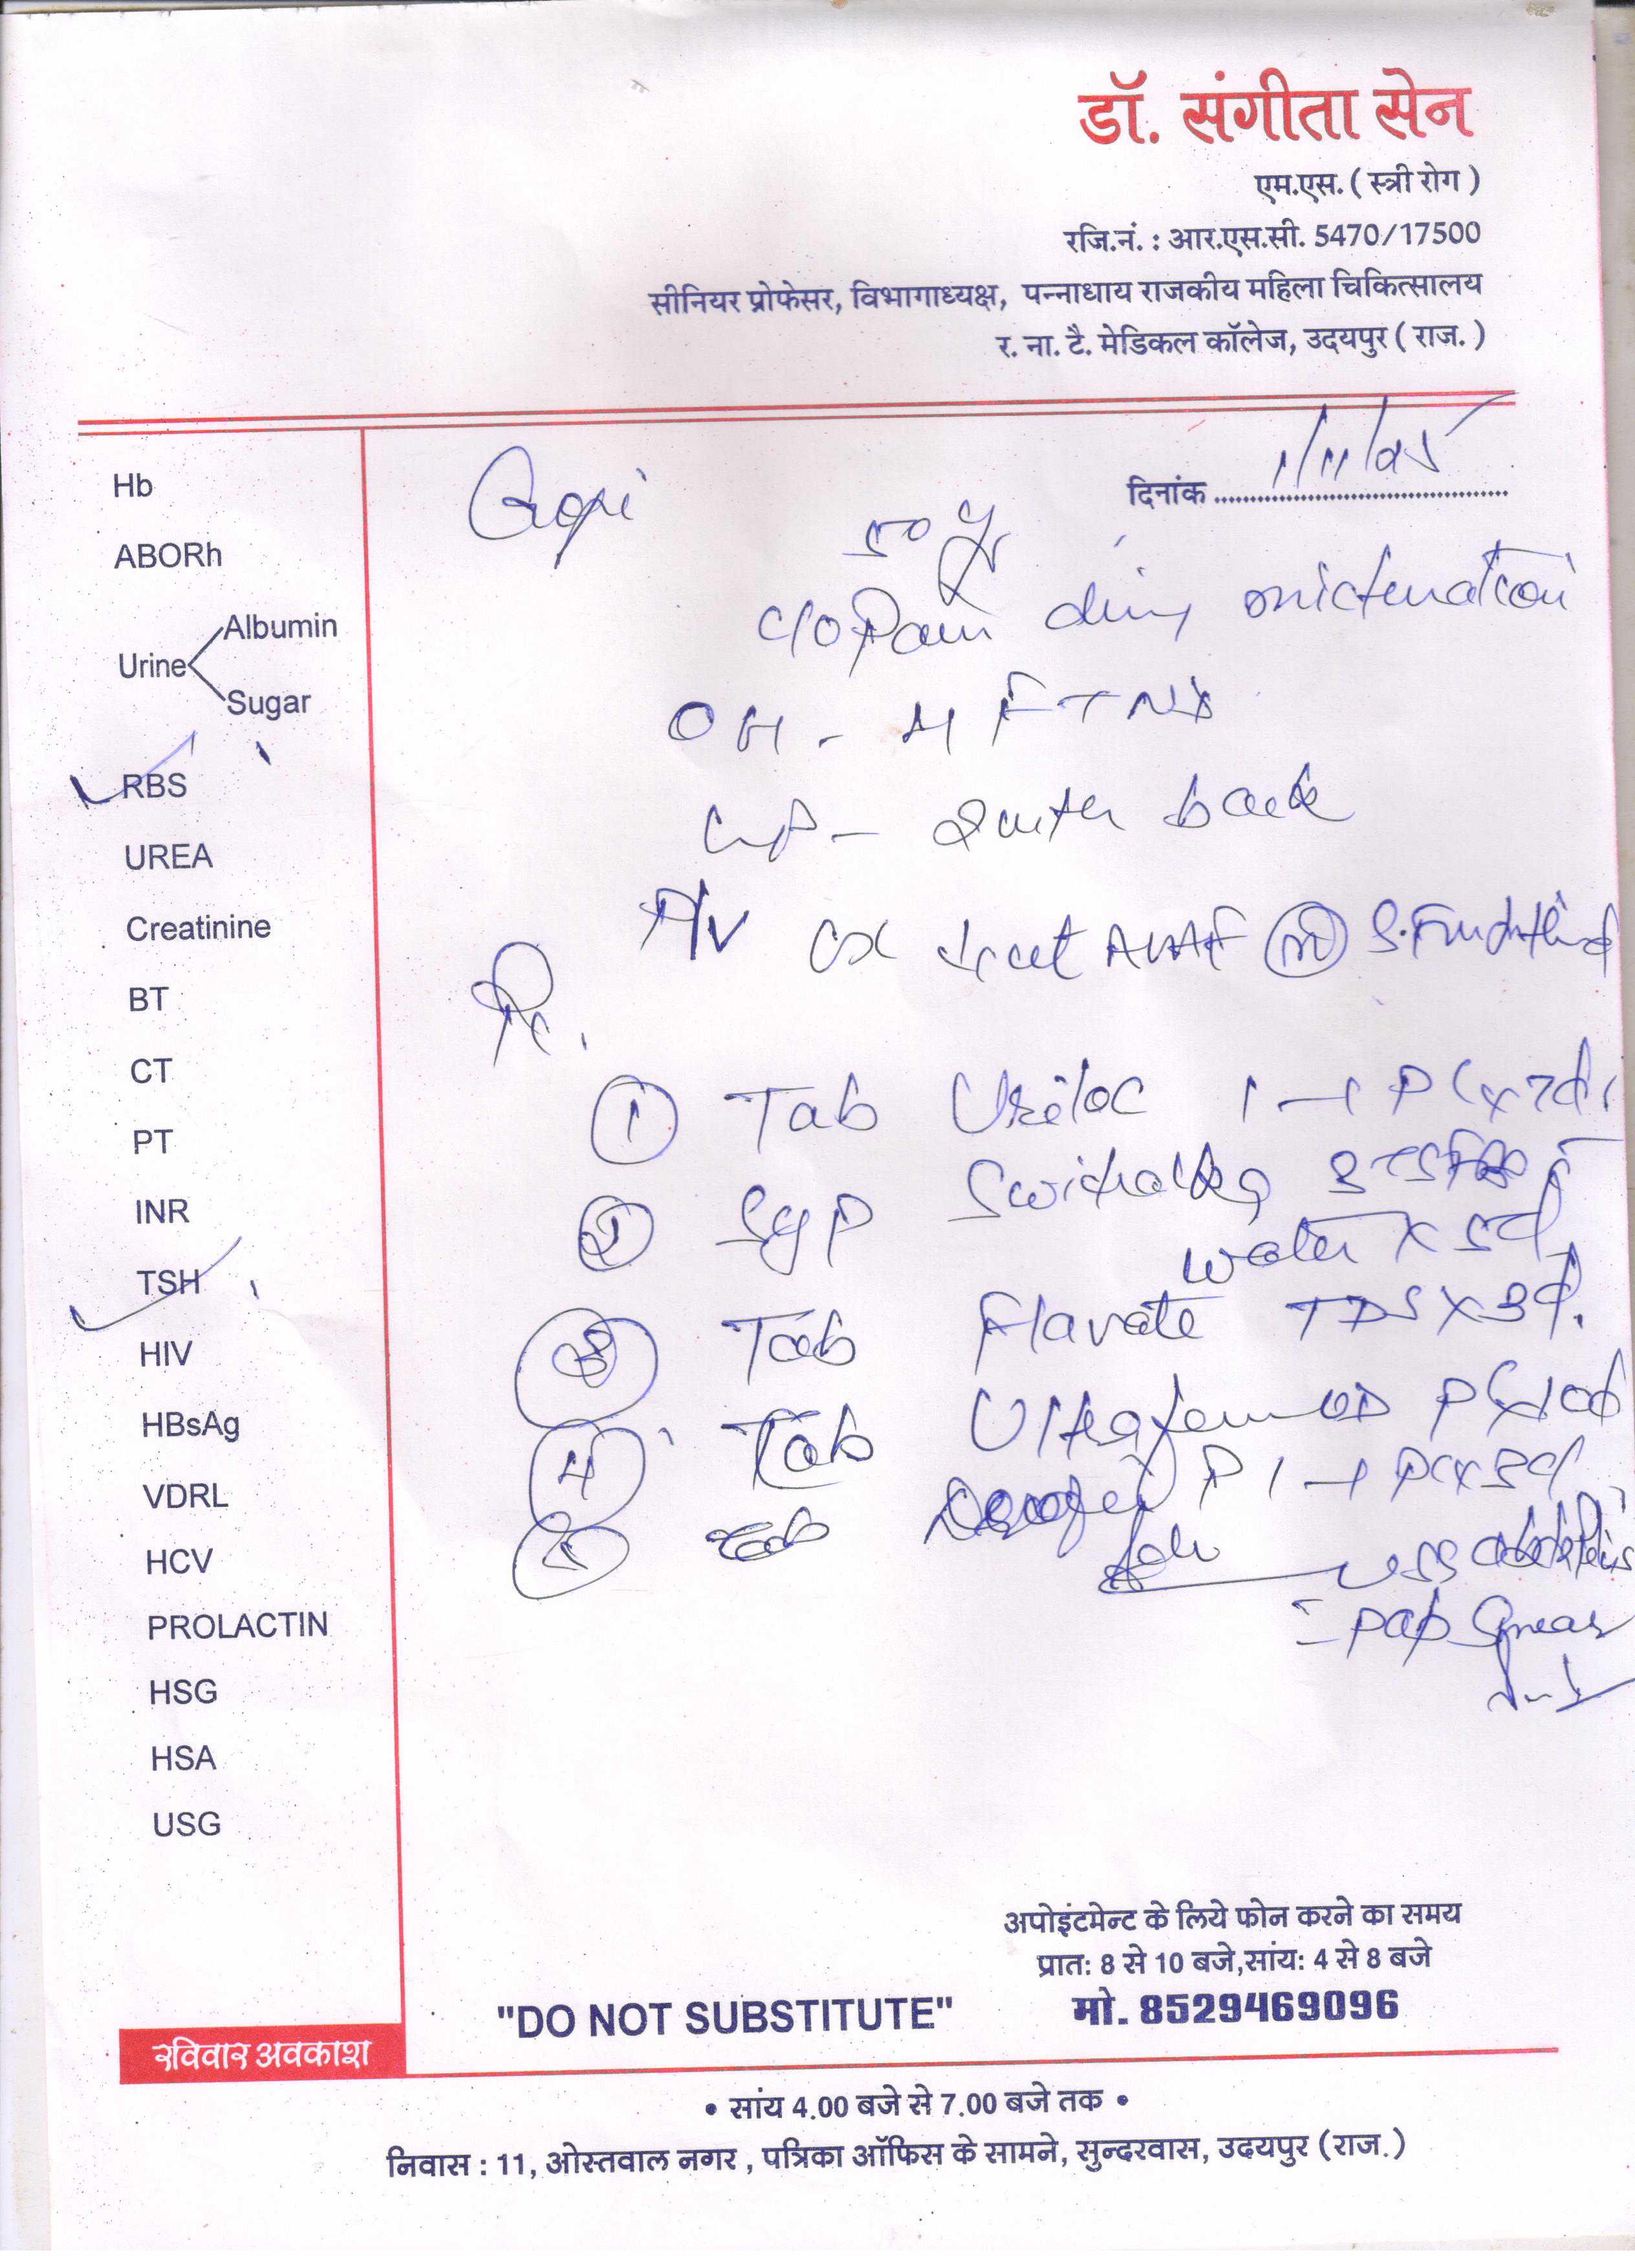 डॉ. संगीता सेन
एम.एस. ( स्त्री रोग )
रजि.नं. : आर.एस.सी. 5470/17500
सीनियर प्रोफेसर, विभागाध्यक्ष, पन्नाधाय राजकीय महिला चिकित्सालय
र. ना. टै. मेडिकल कॉलेज, उदयपुर ( राज. )
दिनांक 1/11/25
Hb
ABORh
Urine
Albumin
Sugar
RBS
UREA
Creatinine
BT
CT
PT
INR
TSH
HIV
HBsAg
VDRL
HCV
PROLACTIN
HSG
HSA
USG
Gopi
50 yr
c/o Pain during micturation
OH - 4 FTND
LMP - back
P/V Cx AVAF
Rx.
① Tab 1-1 PC x 7d
② Syp
water x 5d
③ Tab Flavate TDS x 3d.
④ Tab OD
⑤ Tab P 1-1 PC x 3d
Adv USG
- pap smear
अपोइंटमेन्ट के लिये फोन करने का समय
प्रात: 8 से 10 बजे,सांय: 4 से 8 बजे
मो. 8529469096
"DO NOT SUBSTITUTE"
रविवार अवकाश
• सांय 4.00 बजे से 7.00 बजे तक •
निवास : 11, ओस्तवाल नगर , पत्रिका ऑफिस के सामने, सुन्दरवास, उदयपुर (राज.)